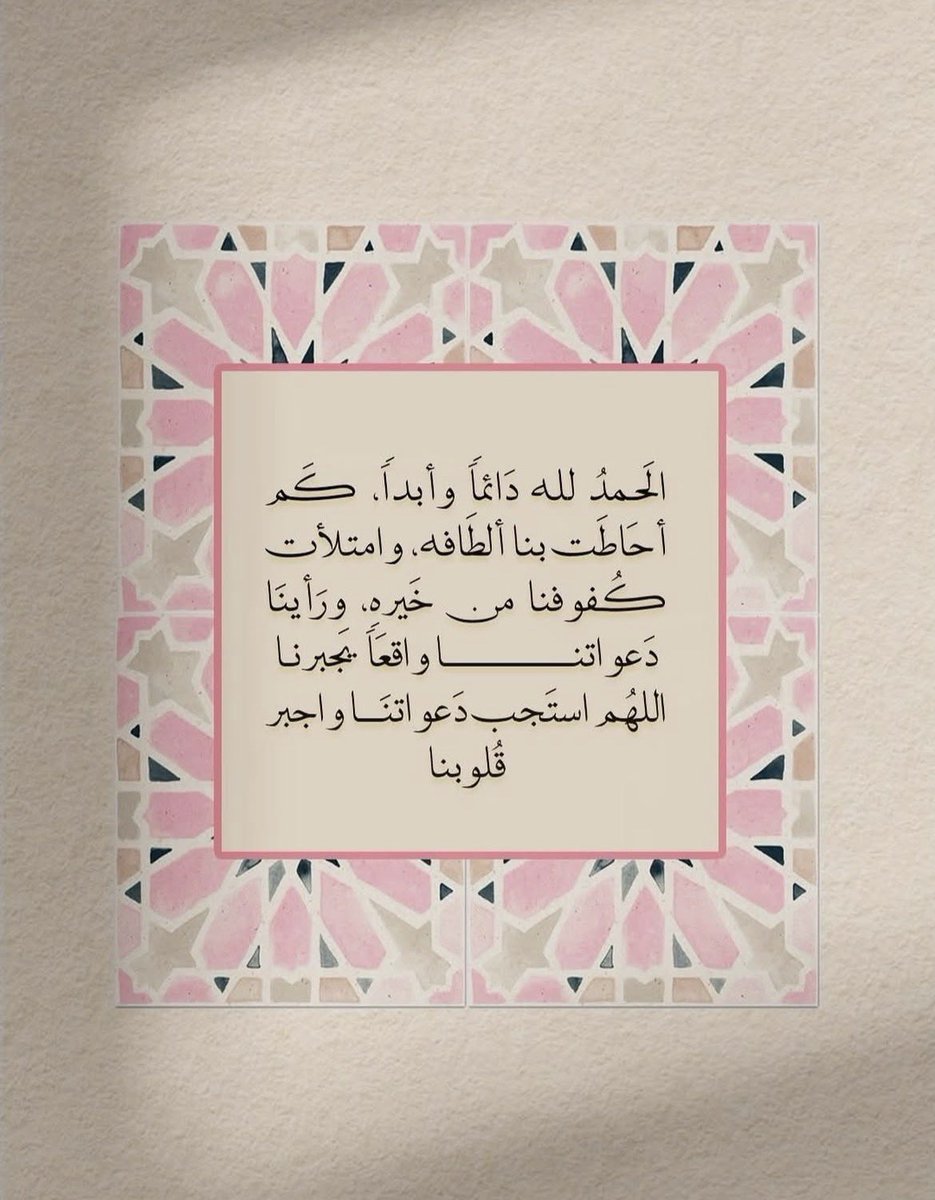 الَحمدُ لله دَائماً وأبداً، كَم
أحَاطَت بنا ألطَافه، وامتلأت
كُفوفنا من خَيره، ورَأينَا
دَعواتنـــــــــا واقعَاً يَجبرنا
اللهُم استَجب دَعواتنَــا واجبر
قُلوبنا